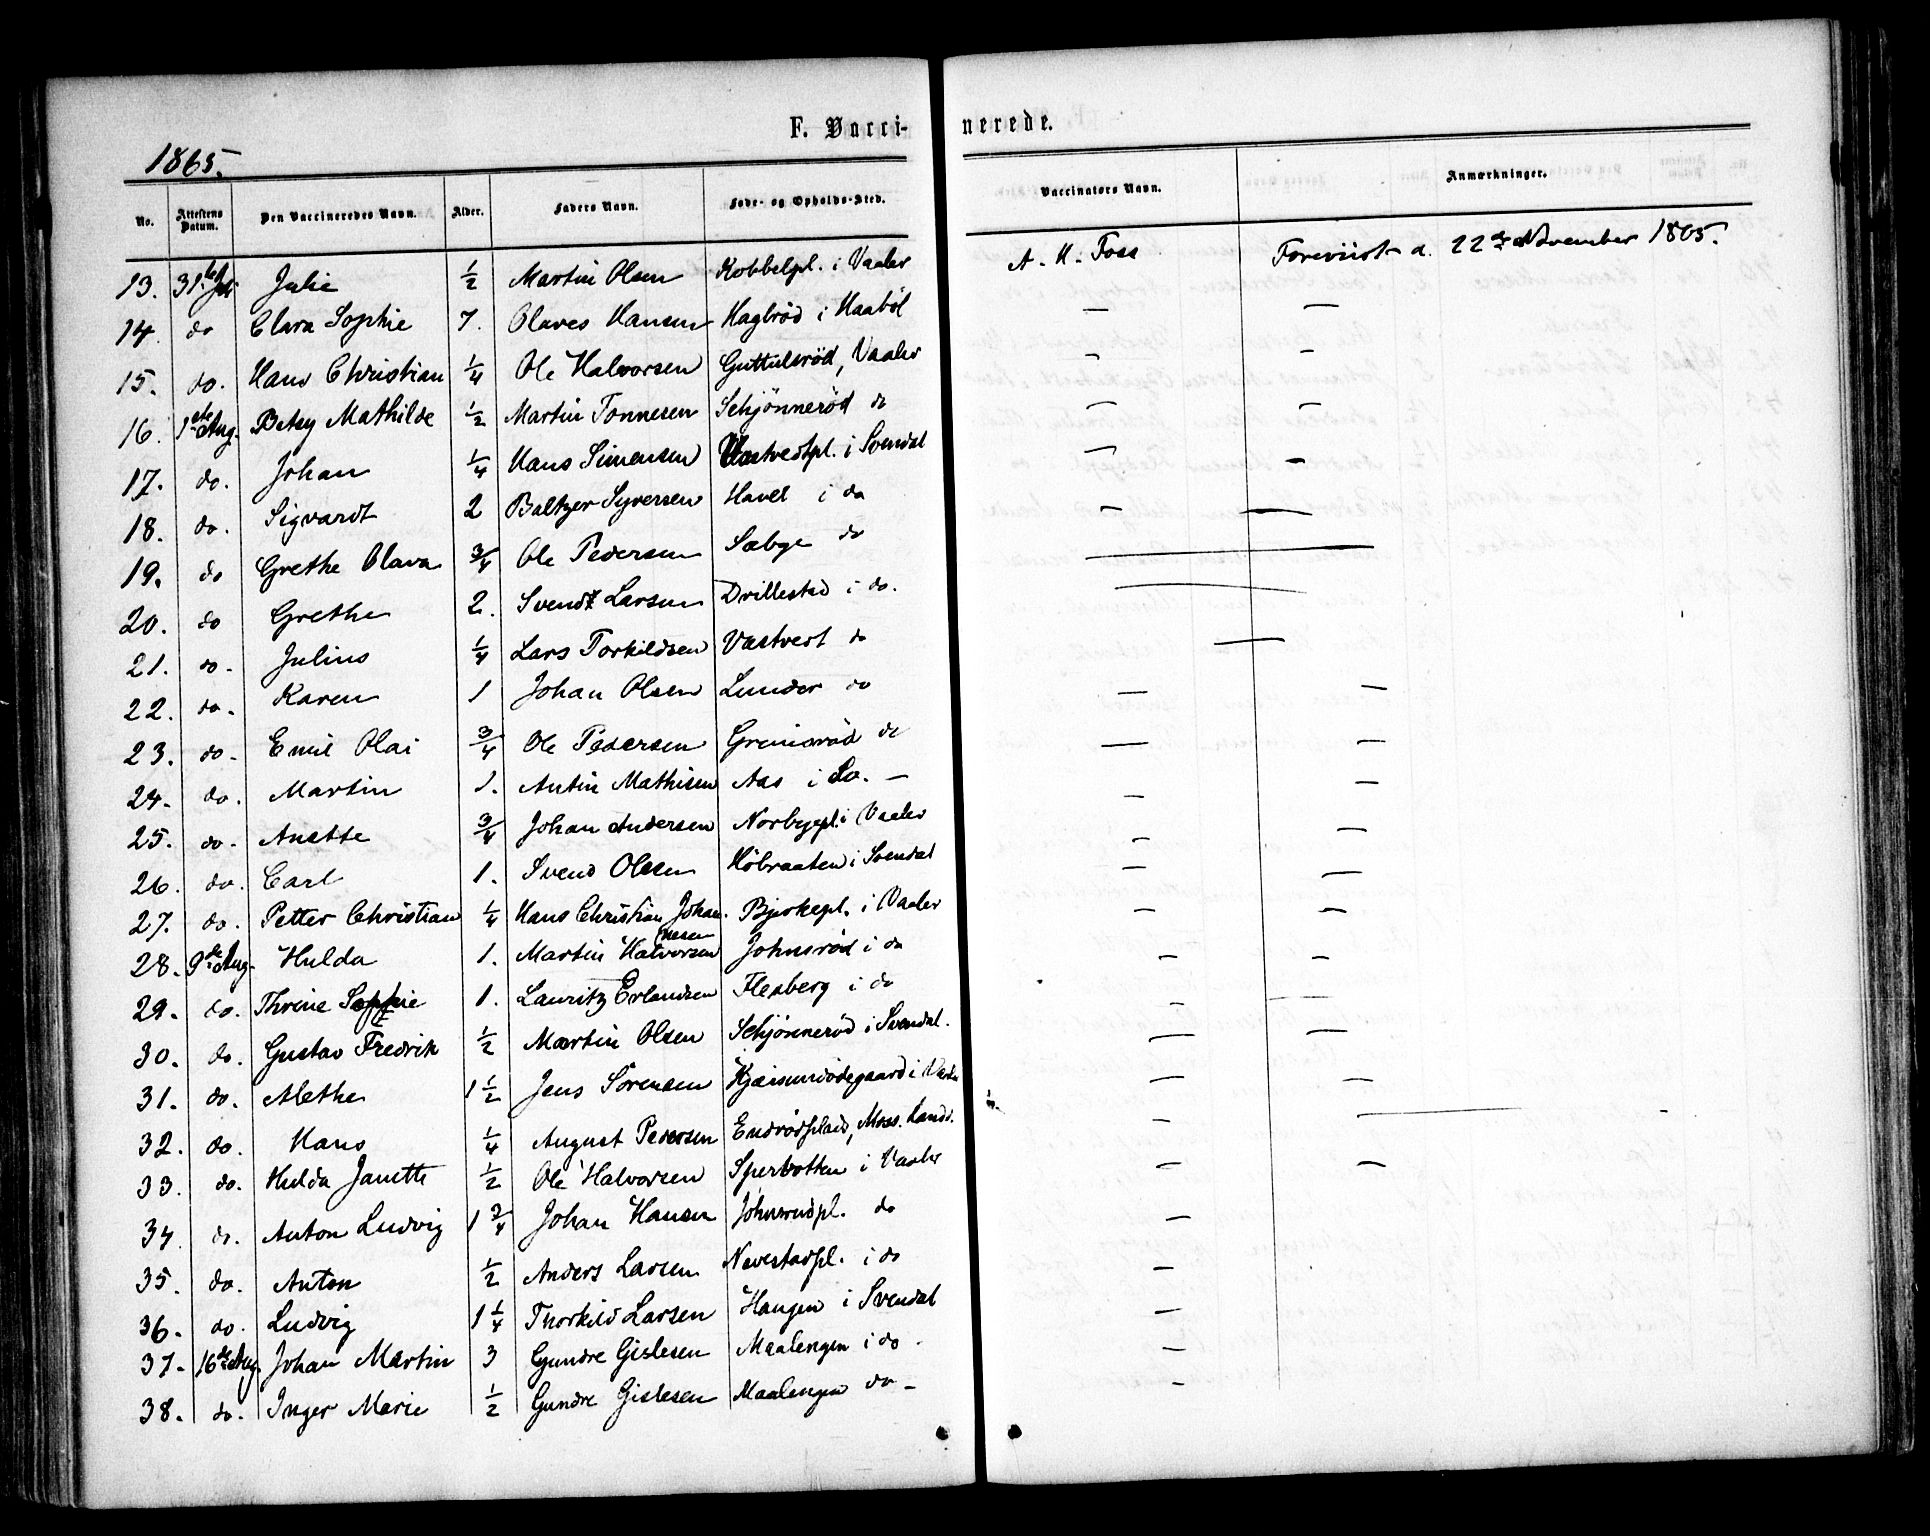 F. Vacci- nerede.
1865.
No. Attestens Datum. Den Vaccineredes Navn. Alder. Faders Navn. Føde- og Opholds-Sted. Vaccinators Navn. Anmærkninger.
13. 31te Juli Julie 1/2 Martin Olsen Kobbelpl. i Vaaler A. H. Foss Foreviist d. 22de November 1865.
14. do Clara Sophie 7. Olaves Hansen Hagbrød i Haabøl — —
15. do. Hans Christian 1/4 Ole Halvorsen Guttulsrød, Vaaler — —
16. 1ste Aug. Betsy Mathilde 1/2 Martin Tonnesen Schjønnerød do — —
17. do. Johan 1/4 Hans Simensen Vastvedtpl. i Svendal — —
18. do. Sigvardt 2 Baltzer Syversen Havel i do — —
19. do Grethe Olava 3/4 Ole Pedersen Sæbye do —
20. do Grethe 2. Svend Larsen Drillestad i do. —
21. do. Julius 1/4 Lars Torkildsen Vastvert do —
22. do. Karen 1 Johan Olsen Lunder do — —
23. do. Emil Olai 3/4 Ole Pedersen Grimsrød do — —
24. do. Martin 1. Antin Mathisen Aas i do. — — —
25. do. Anette 3/4 Johan Andersen Norbyepl. i Vaaler — —
26. do. Carl 1. Svend Olsen Høbraaten i Svendal — —
27. do. Petter Christian 1/4 Hans Christian Johannesen Bjerkepl. i Vaaler — —
28. 9de Aug. Hulda 1. Martin Halvorsen Johnsrød i do — —
29. do. Thrine Sophie 1. Lauritz Erlandsen Flesberg i do — —
30. do. Gustav Fredrik 1/2 Martin Olsen Schjønnerød i Svendal. — —
31. do. Alethe 1 1/2 Jens Sørensen i — —
32. do. Hans 1/4 August Pedersen Endrødplads, Moss. Lands. — —
33. do. Hulda Janette 1/2 Ole Halvorsen Sperbotten i Vaaler — —
34. do. Anton Ludvig 1 3/4 Johan Hansen Johnsrudpl. do —
35. do. Anton 1/2 Anders Larsen Navestadpl. i do —
36. do. Ludvig 1 1/4 Thorkild Larsen Haugen i Svendal —
37. 16de Aug. Johan Martin 3 Gundre Gislesen Maalengen i do. —
38. do. Inger Marie 1/2 Gundre Gislesen Maalengen do — —